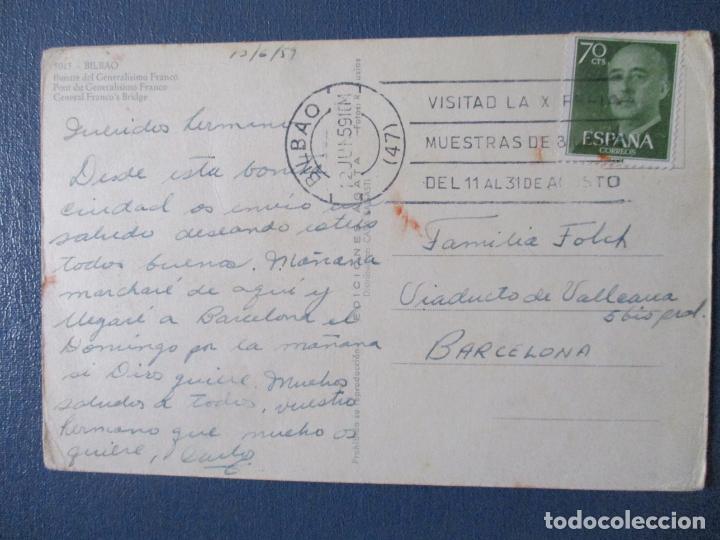 12/6/59
5015 - BILBAO
Puente del Generalísimo Franco
Pont du Generalísimo Franco
General Franco's Bridge
Queridos hermanos
Desde esta bonita
ciudad os envío un
saludo deseando estéis
todos buenos. Mañana
marcharé de aquí y
llegaré a Barcelona el
Domingo por la mañana
si Dios quiere. Muchos
saludos a todos, vuestro
hermano que mucho os
quiere,
Prohibida su reproducción
EDICIONES ARATA
BILBAO
12 JUN 59 10M
(47)
VISITAD LA X FERIA
MUESTRAS DE
DEL 11 AL 31 DE AGOSTO
70
CTS
ESPAÑA
CORREOS
Familia Folch
Viaducto de Vallcarca
BARCELONA
todocoleccion.net